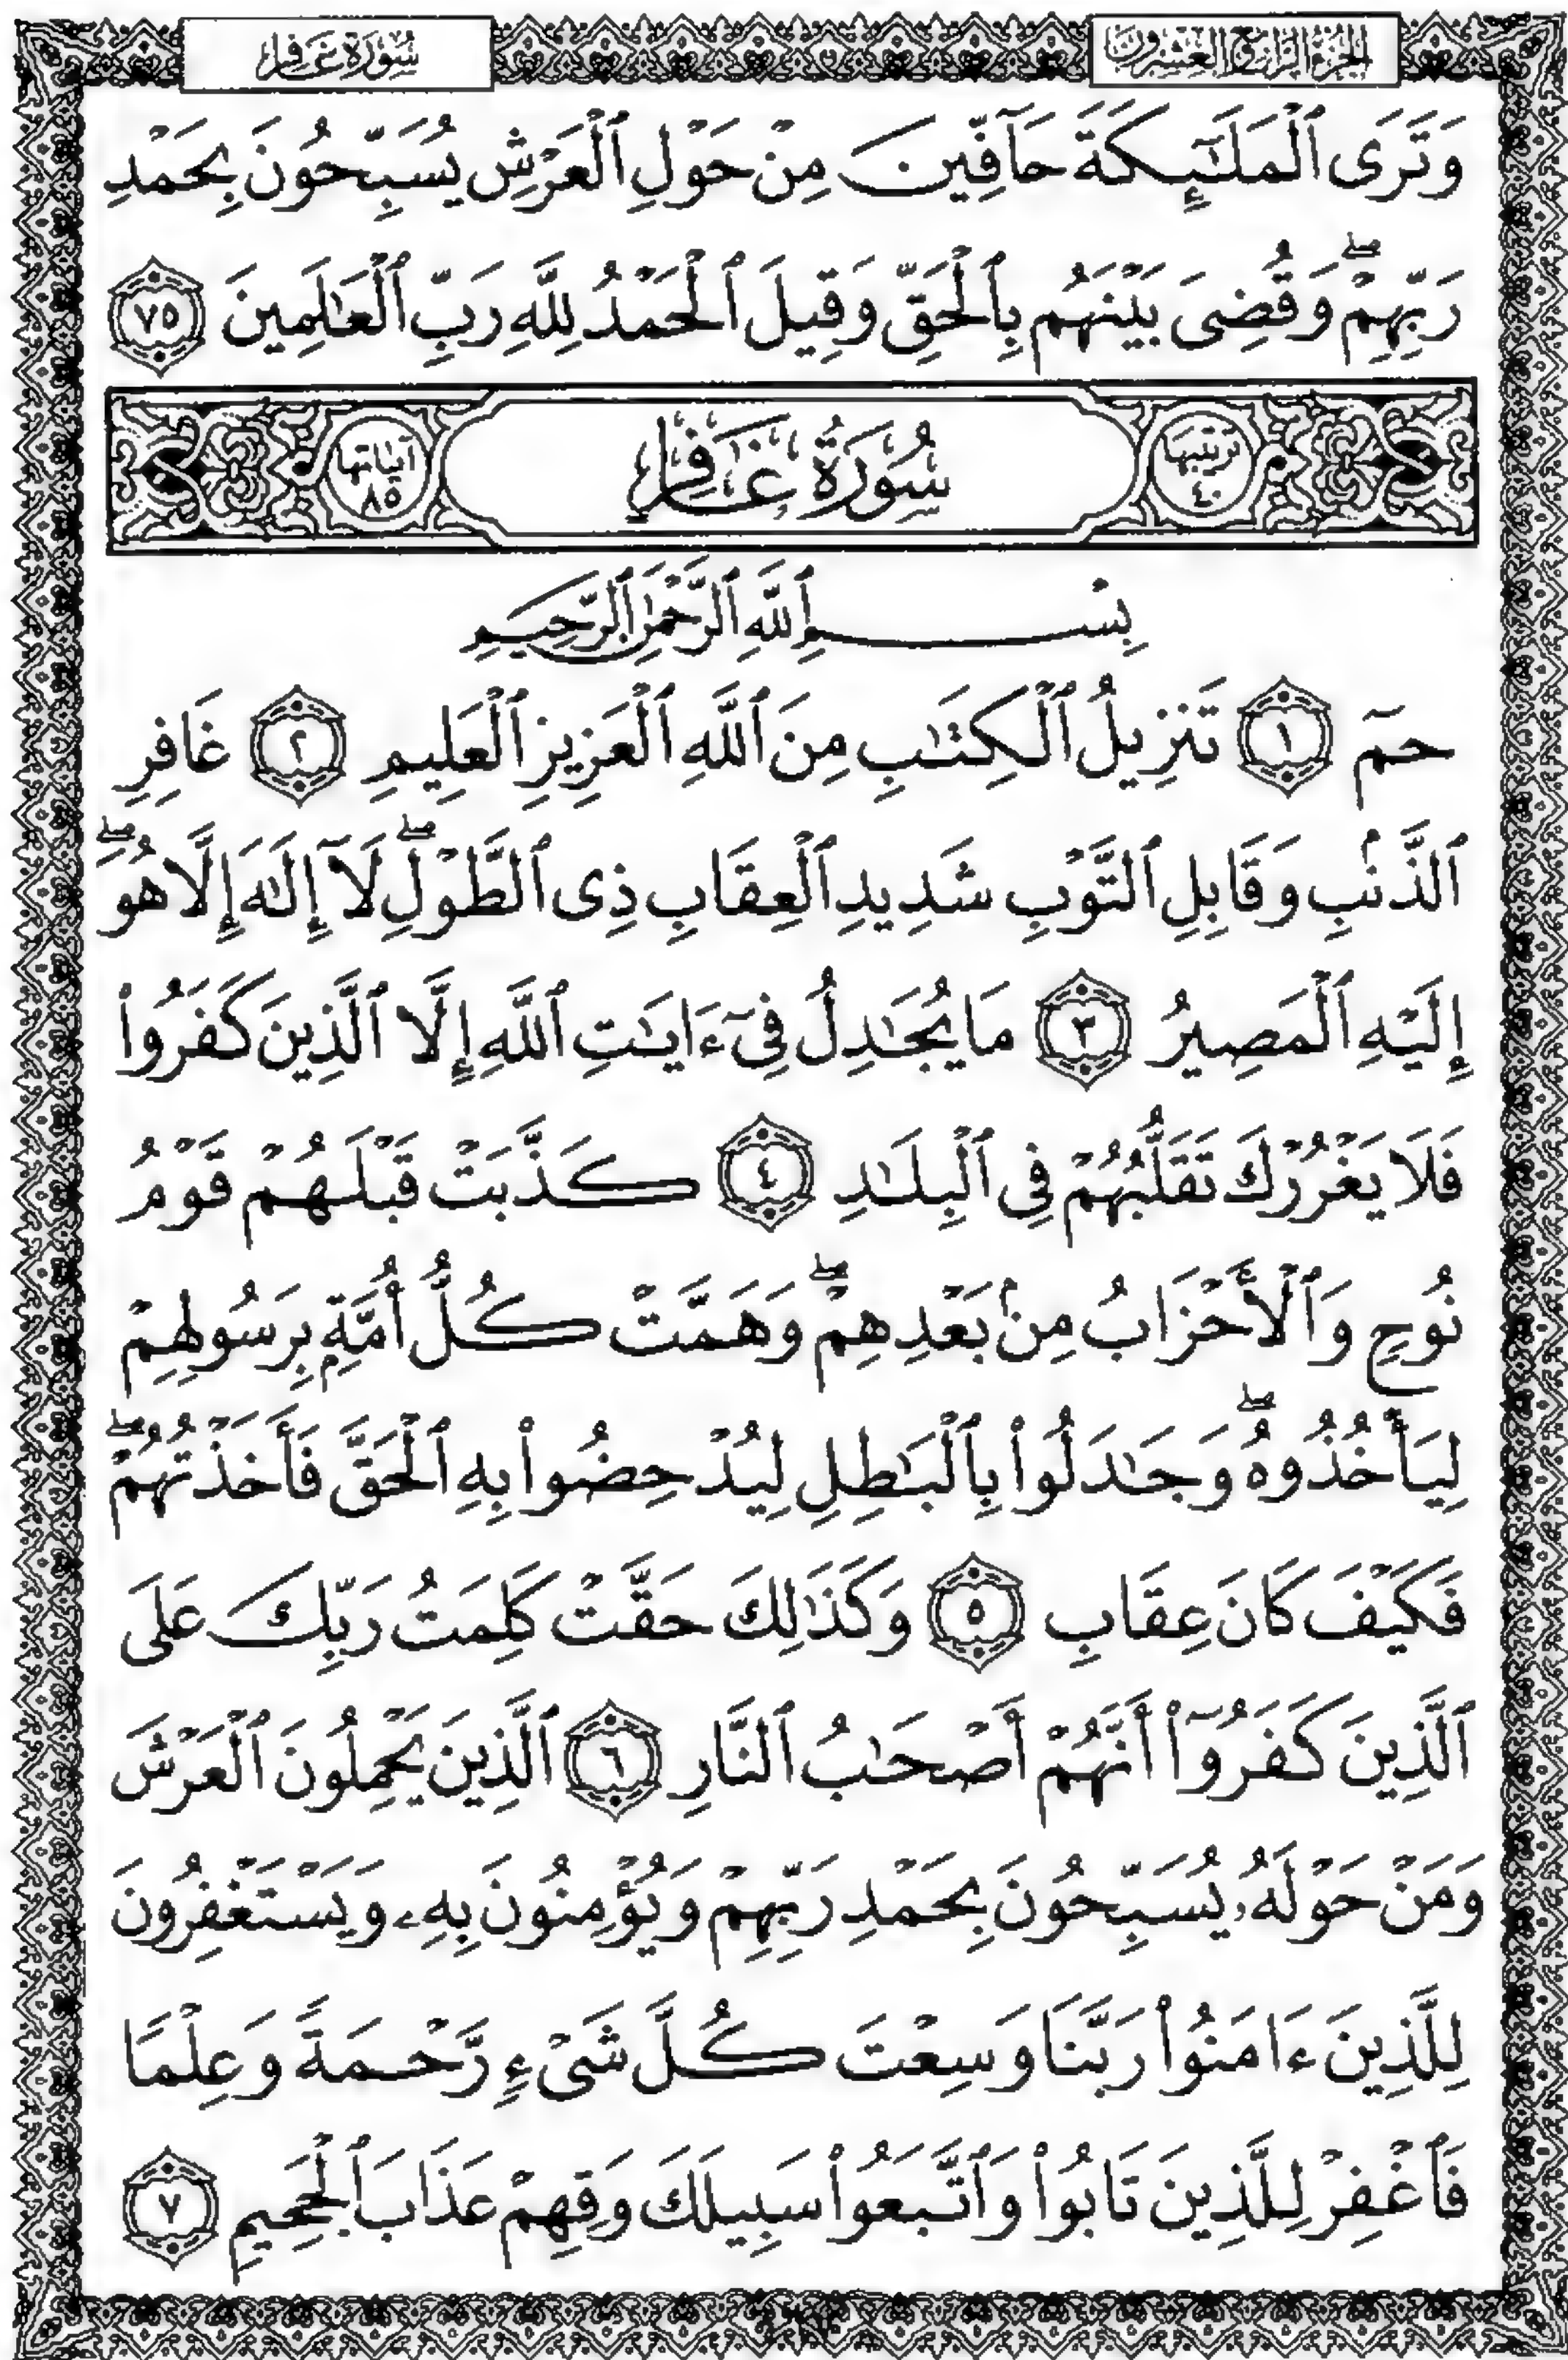 الجزء الرابع والعشرون
سورة غافر
وَتَرَى ٱلْمَلَٰٓئِكَةَ حَآفِّينَ مِنْ حَوْلِ ٱلْعَرْشِ يُسَبِّحُونَ بِحَمْدِ
رَبِّهِمْ ۖ وَقُضِىَ بَيْنَهُم بِٱلْحَقِّ وَقِيلَ ٱلْحَمْدُ لِلَّهِ رَبِّ ٱلْعَٰلَمِينَ ٧٥
ترتيبها ٤٠
سُورَةُ غَافِرٍ
آياتها ٨٥
بِسْمِ ٱللَّهِ ٱلرَّحْمَٰنِ ٱلرَّحِيمِ
حمٓ ١ تَنزِيلُ ٱلْكِتَٰبِ مِنَ ٱللَّهِ ٱلْعَزِيزِ ٱلْعَلِيمِ ٢ غَافِرِ
ٱلذَّنۢبِ وَقَابِلِ ٱلتَّوْبِ شَدِيدِ ٱلْعِقَابِ ذِى ٱلطَّوْلِ ۖ لَآ إِلَٰهَ إِلَّا هُوَ ۖ
إِلَيْهِ ٱلْمَصِيرُ ٣ مَا يُجَٰدِلُ فِىٓ ءَايَٰتِ ٱللَّهِ إِلَّا ٱلَّذِينَ كَفَرُوا۟
فَلَا يَغْرُرْكَ تَقَلُّبُهُمْ فِى ٱلْبِلَٰدِ ٤ كَذَّبَتْ قَبْلَهُمْ قَوْمُ
نُوحٍ وَٱلْأَحْزَابُ مِنۢ بَعْدِهِمْ ۖ وَهَمَّتْ كُلُّ أُمَّةٍۭ بِرَسُولِهِمْ
لِيَأْخُذُوهُ ۖ وَجَٰدَلُوا۟ بِٱلْبَٰطِلِ لِيُدْحِضُوا۟ بِهِ ٱلْحَقَّ فَأَخَذْتُهُمْ ۖ
فَكَيْفَ كَانَ عِقَابِ ٥ وَكَذَٰلِكَ حَقَّتْ كَلِمَتُ رَبِّكَ عَلَى
ٱلَّذِينَ كَفَرُوٓا۟ أَنَّهُمْ أَصْحَٰبُ ٱلنَّارِ ٦ ٱلَّذِينَ يَحْمِلُونَ ٱلْعَرْشَ
وَمَنْ حَوْلَهُۥ يُسَبِّحُونَ بِحَمْدِ رَبِّهِمْ وَيُؤْمِنُونَ بِهِۦ وَيَسْتَغْفِرُونَ
لِلَّذِينَ ءَامَنُوا۟ رَبَّنَا وَسِعْتَ كُلَّ شَىْءٍ رَّحْمَةً وَعِلْمًا
فَٱغْفِرْ لِلَّذِينَ تَابُوا۟ وَٱتَّبَعُوا۟ سَبِيلَكَ وَقِهِمْ عَذَابَ ٱلْجَحِيمِ ٧